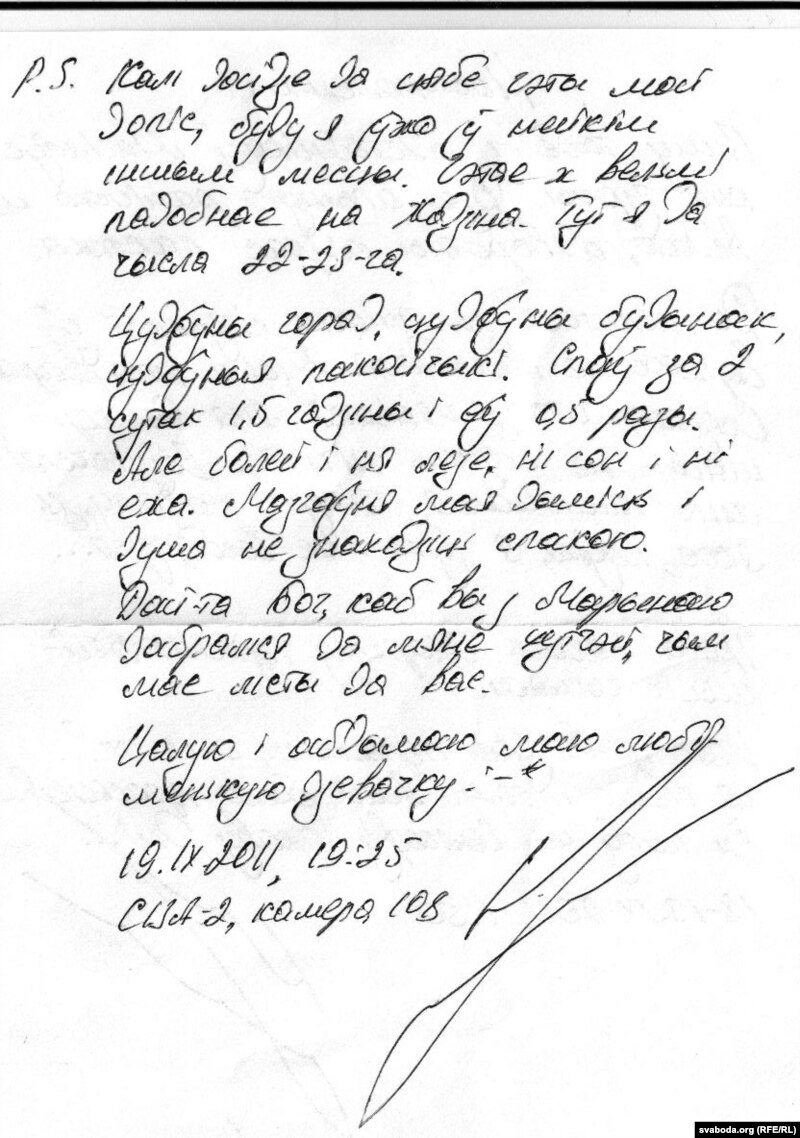 P.S. Калі дойдзе да цябе гэты мой
допіс, буду я ўжо ў нейкім
іншым месцы. Гэтае ж вельмі
падобнае на Жодзіна. Тут я да
чысла 22-23-га.
Цудоўны горад, цудоўны будынак,
цудоўныя пакойчыкі. Спаў за 2
сутак 1,5 гадзіны і еў 0,5 разы.
Але болей і ня лезе, ні сон і ні
ежа. Мазгоўня мая дыміць і
душа не знаходзіць спакою.
Дай-та Бог, каб вы з Марынаю
дабраліся да мяне хутчэй, чым
мае лісты да вас.
Цалую і абдымаю маю любу
мілую дзевачку :-*
19.IX.2011, 19:25
СИЗА-2, камера 108
svaboda.org (RFE/RL)